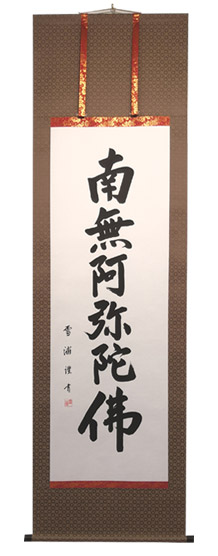 南無阿弥陀佛
雪浦謹書